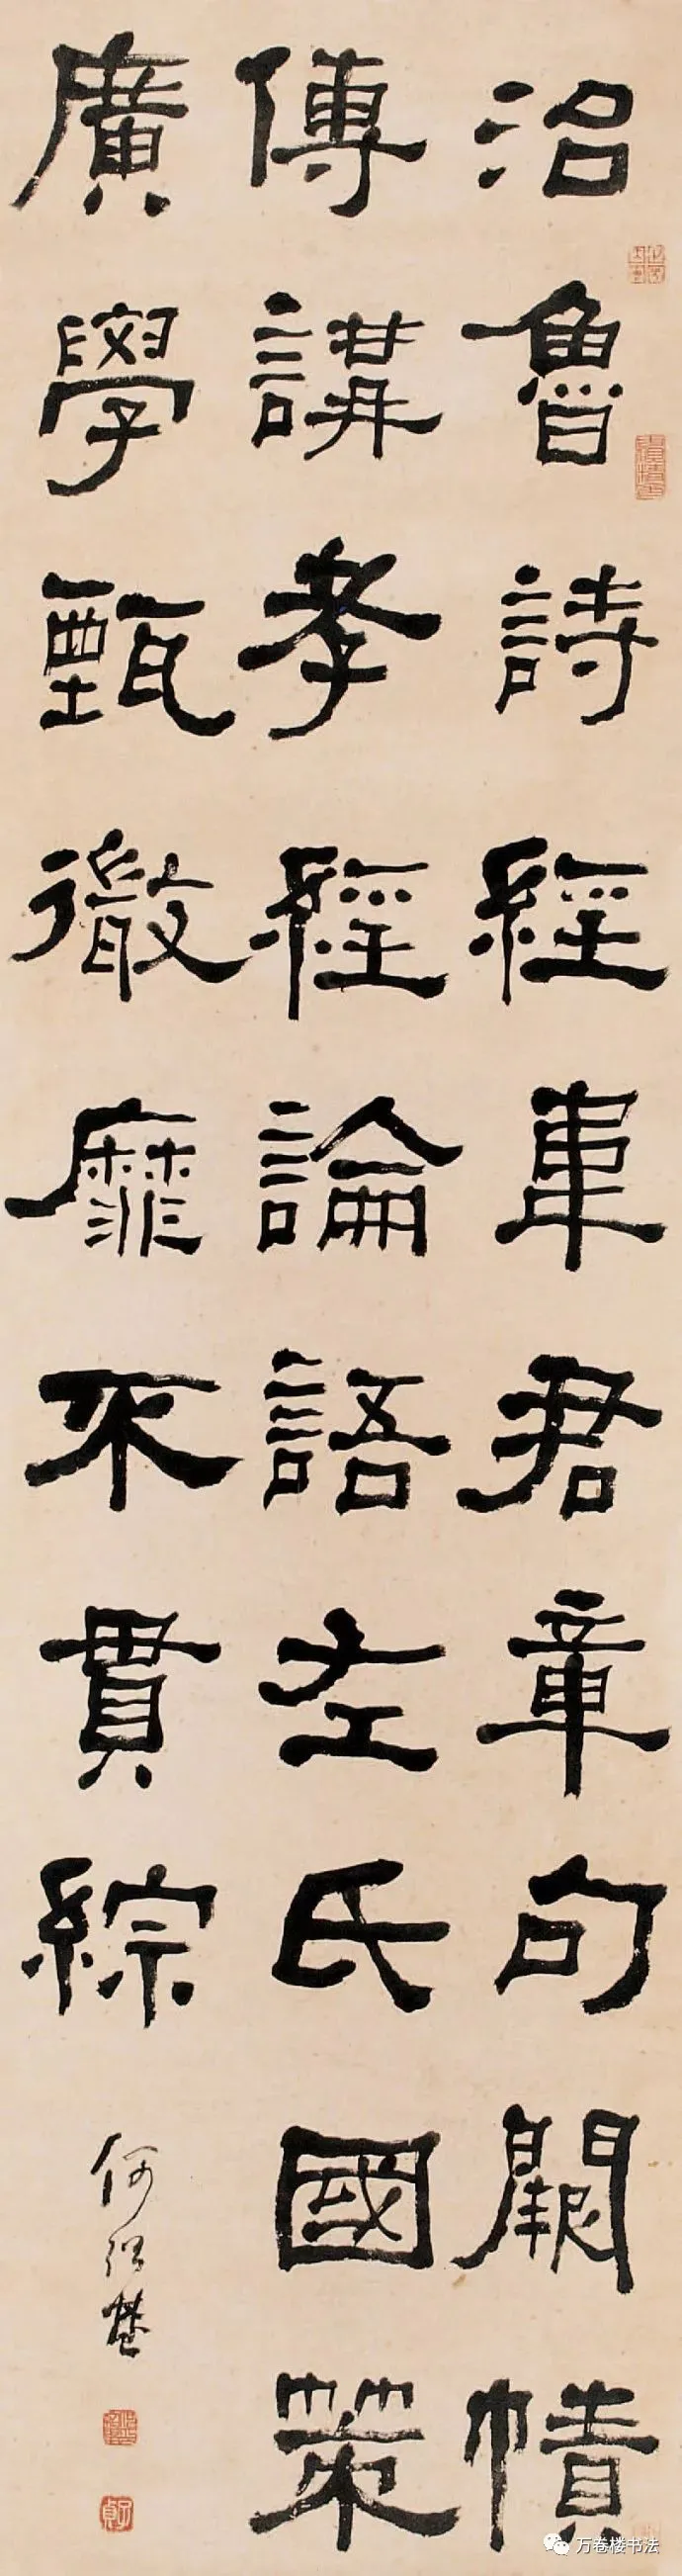 治魯詩經韋君章句闕幘
傳講孝經論語左氏國策
廣學甄微靡不貫綜
何紹基
子貞
万卷楼书法